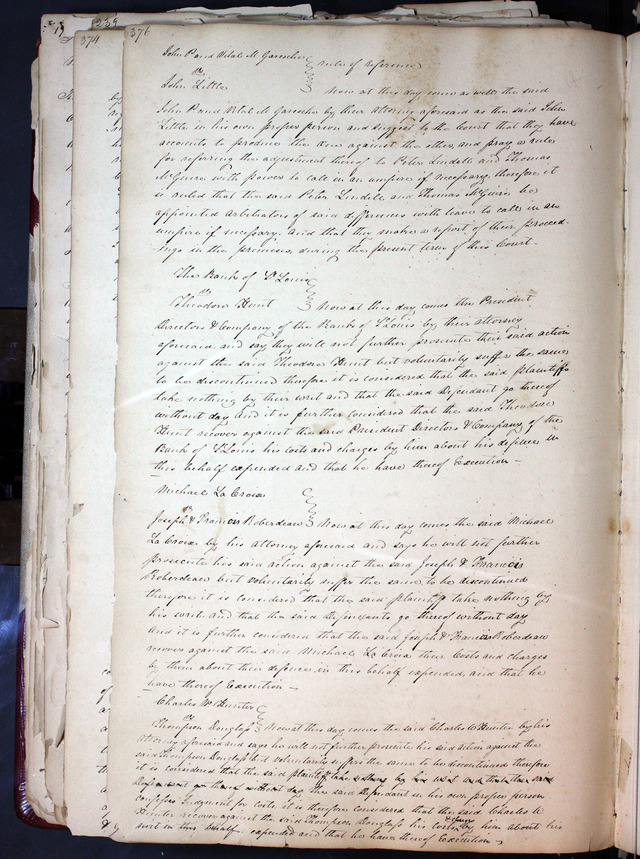 259
374
376
John P and Vital M Garesche
vs } rule of reference
John Little } Now at this day come as well the said
John P and Vital M Garesche by their attorney aforesaid as the said John
Little in his own proper person and suggest to the Court that they have
accounts to produce the one against the other, and pray a rule
for referring the adjustment thereof to Peter Lindell and Thomas
McGuire with power to call in an umpire if necessary, therefore it
is ruled that the said Peter Lindell and Thomas McGuire be
appointed arbitrators of said differences with leave to call in an
umpire if necessary. And that they make a report of their proceed-
ings in the premises, during the present term of this Court-
The Bank of St Louis
vs
Theodore Hunt } Now at this day comes the President
Directors & Company of the Bank of St Louis by their attorney
aforesaid and say they will not further prosecute their said action
against the said Theodore Hunt but voluntarily suffer the same
to be discontinued therefore it is considered that the said plaintiffs
take nothing by their writ and that the said Defendant go thereof
without day and it is further considered that the said Theodore
Hunt recover against the said President Directors & Company of the
Bank of St Louis his costs and charges by him about his defence in
this behalf expended and that he have thereof Execution -
Michael La Croix
vs
Joseph & Francis Roberdeau } Now at this day comes the said Michael
La Croix by his attorney aforesaid and says he will not further
prosecute his said action against the said Joseph & Francis
Roberdeau but voluntarily suffer the same to be discontinued
therefore it is considered that the said plaintiff take nothing by
his writ and that the said Defendants go thereof without day
And it is further considered that the said Joseph & Francis Roberdeau
recover against the said Michael La Croix their Costs and charges
by them about their defence in this behalf expended, and that he
have thereof Execution -
Charles W Hunter
vs
Thompson Douglass } Now at this day comes the said Charles W Hunter by his
attorney aforesaid and says he will not further prosecute his said action against the
said Thompson Douglass but voluntarily suffers the same to be discontinued therefore
it is considered that the said plaintiff take nothing by his writ and that the said
Defendant go thereof without day the said Defendant in his own proper person
confesses Judgement for costs it is therefore considered that the said Charles W
Hunter recover against the said Thompson Douglass his costs & charges by him about his
suit in this behalf expended and that he have thereof Execution -